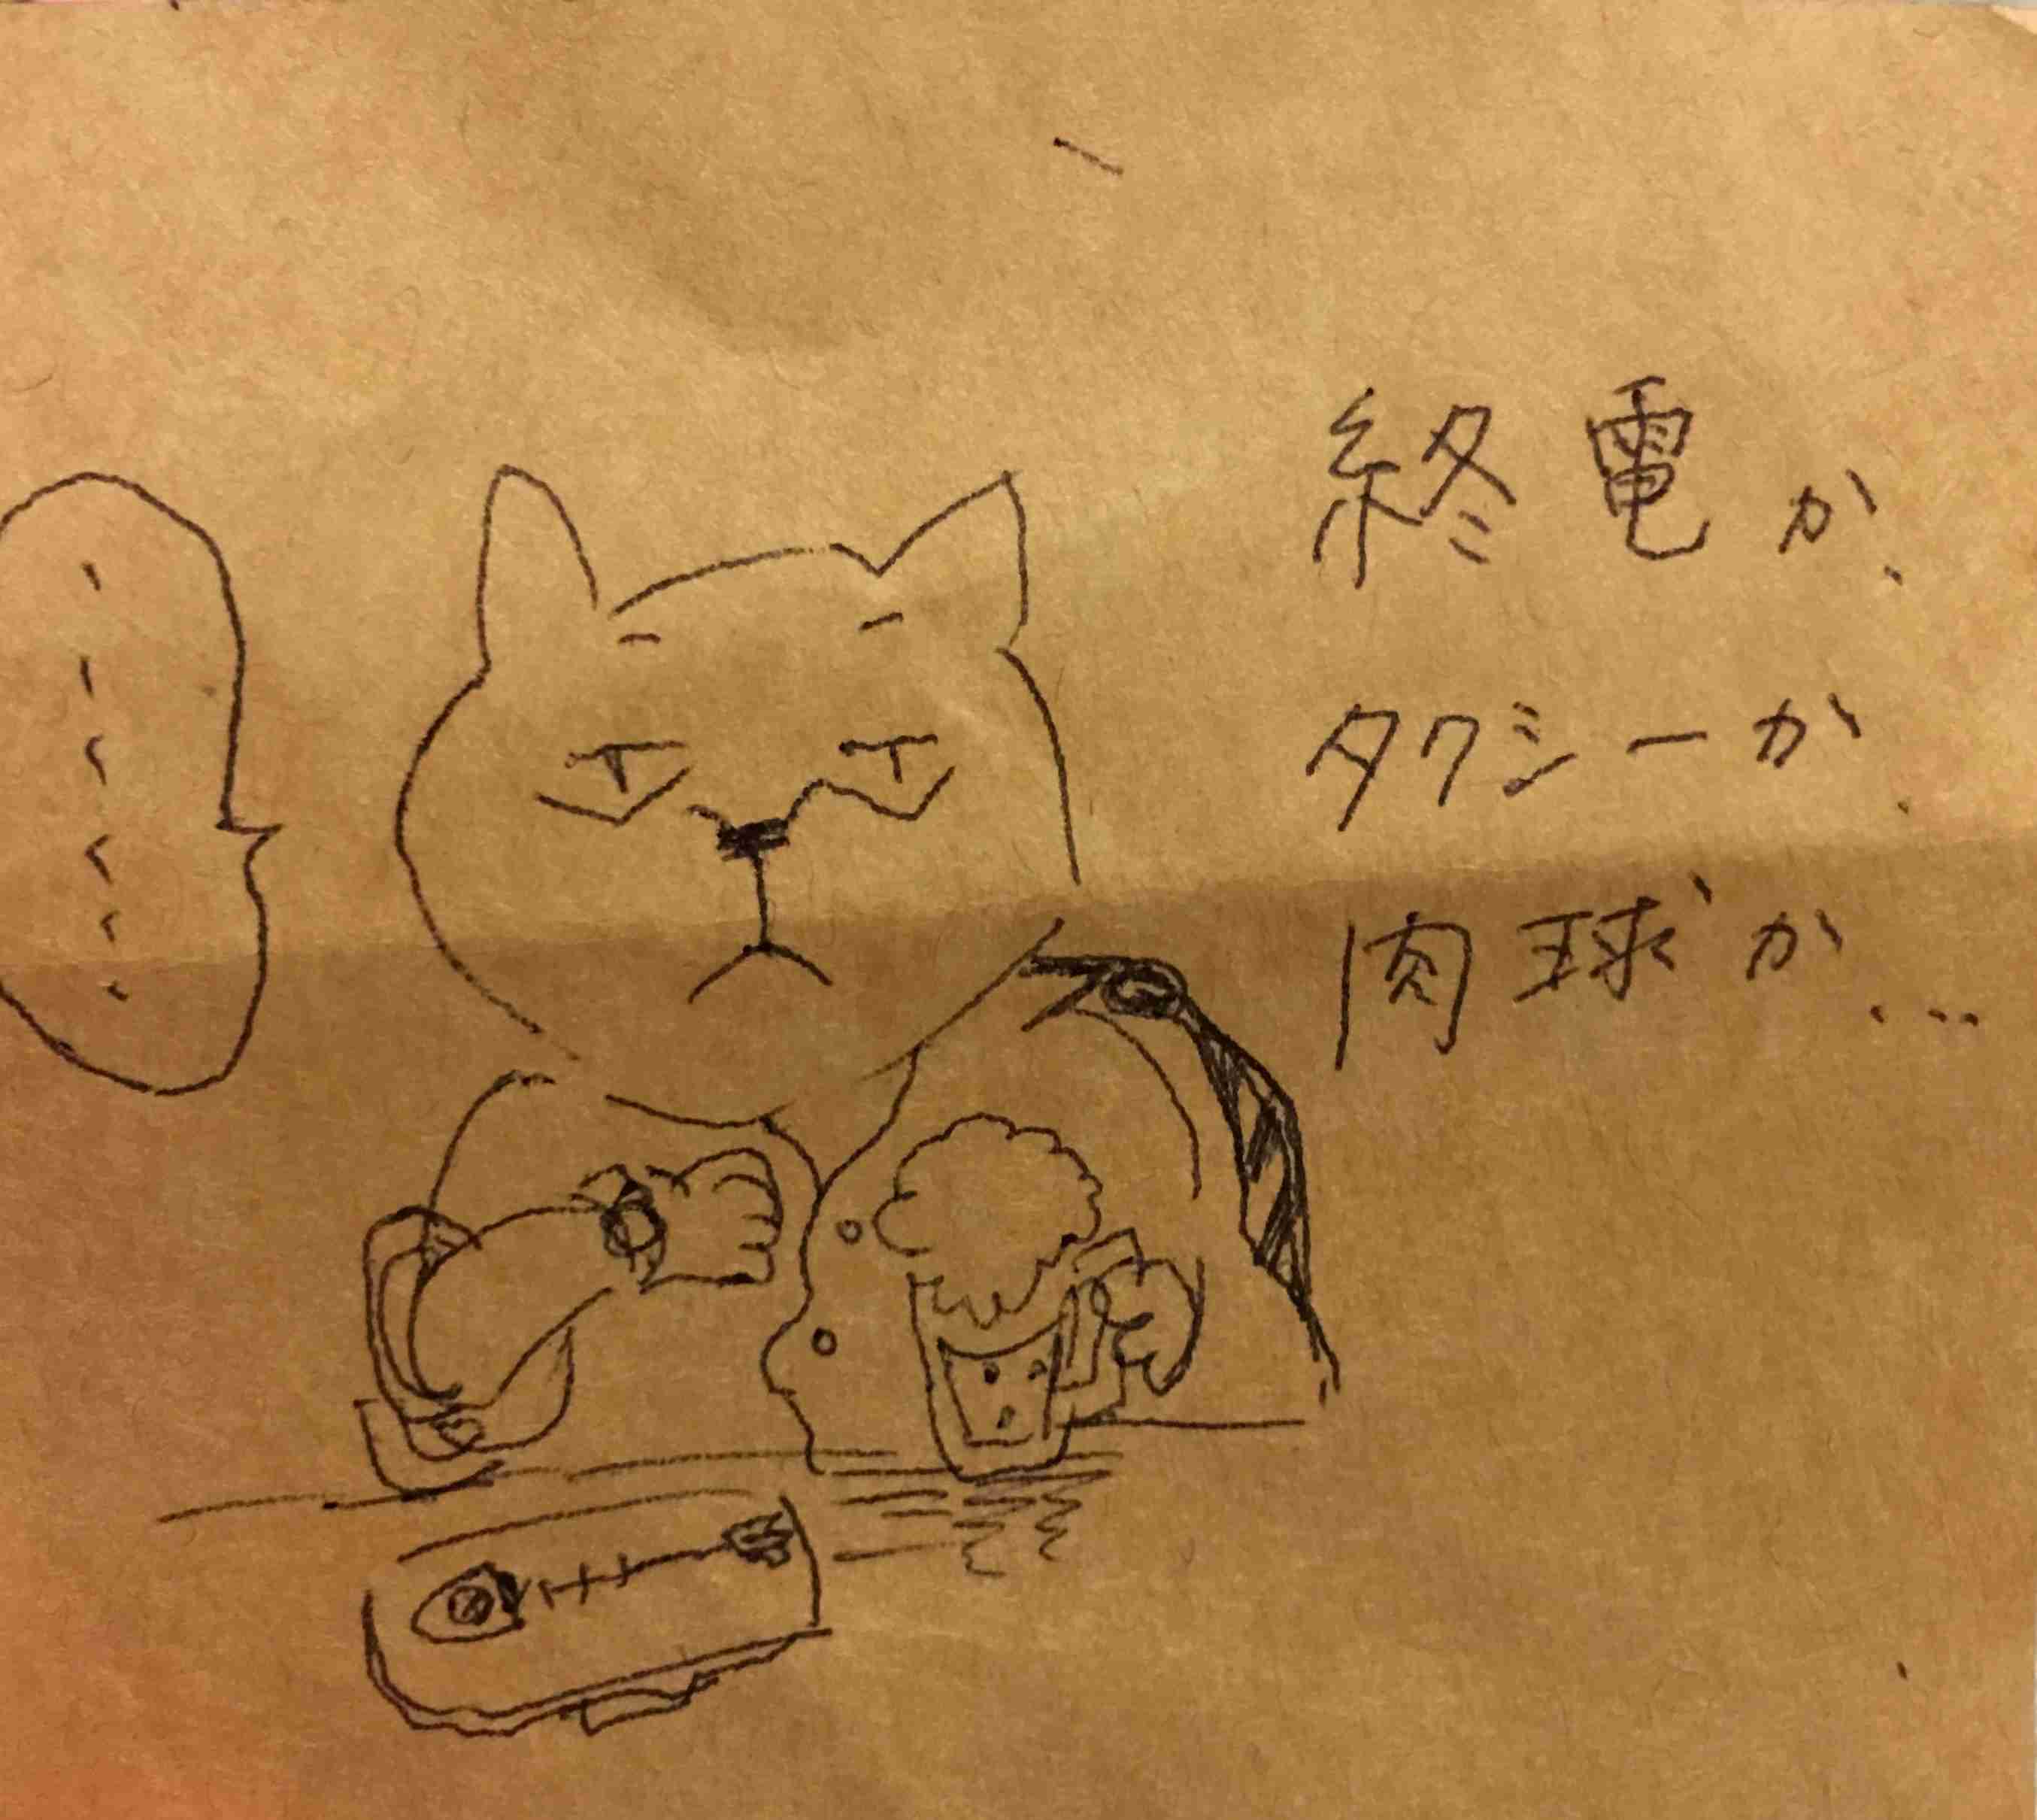 終電か、
タクシーか、
肉球か、…